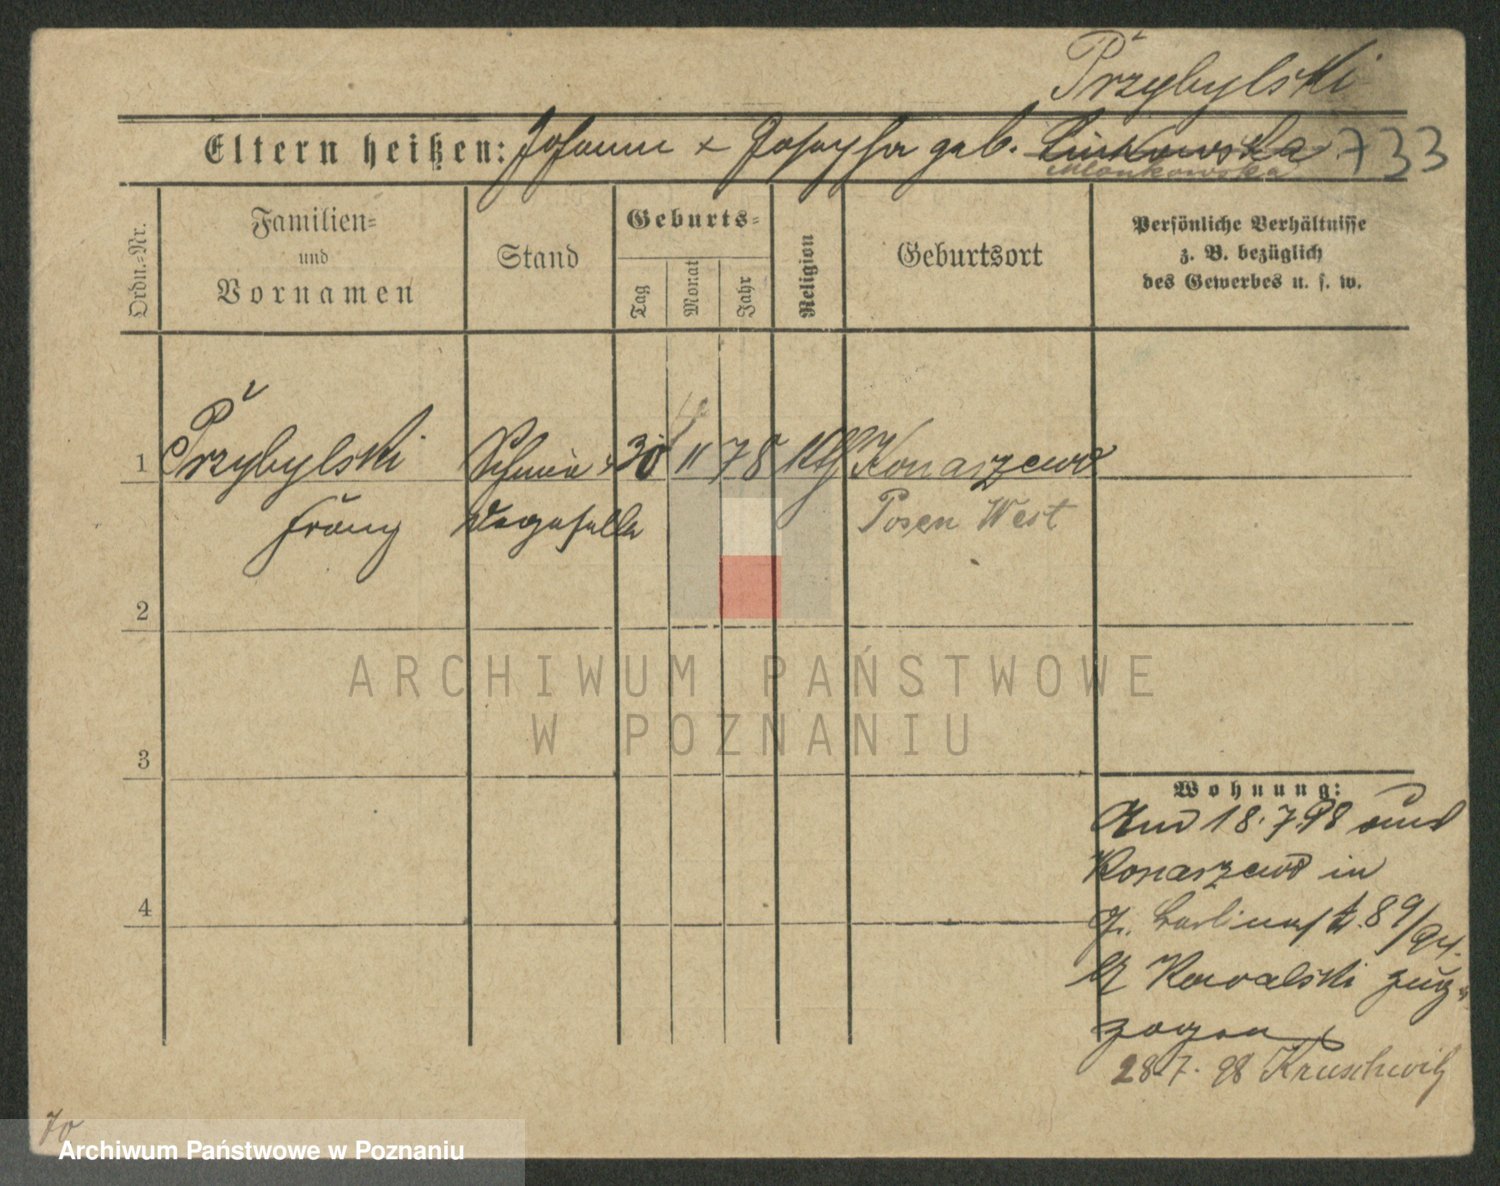 Přzybylski
Eltern heißen: Johann & Josepha geb. Linkowska 733
Mlonkowska
Ordn.-Nr.
Familien- und Vornamen
Stand
Geburts-
Tag Monat Jahr
Religion
Geburtsort
Persönliche Verhältnisse
z. B. bezüglich
des Gewerbes u. s. w.
1 Přzybylski 30 11 78 kth Konarzewo
Franz Posen West
2
3
4
ARCHIWUM PAŃSTWOWE
W POZNANIU
Wohnung:
Am 18.7.98 aus
Konarzewo in
Gr. Berlinerstr. 89/94.
b/ Kowalski zuge-
zogen
28.7.98 Kruschwitz
70
Archiwum Państwowe w Poznaniu